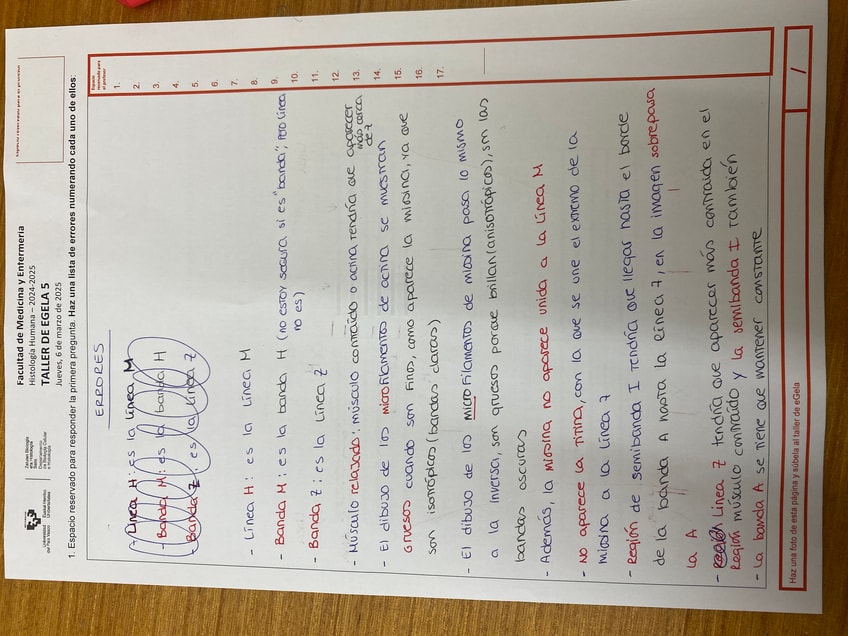 Universidad del País Vasco
Euskal Herriko Unibertsitatea
Zelulen Biologia eta Histologia Saila
Departamento de Biología Celular e Histología
Facultad de Medicina y Enfermería
Histología Humana – 2024-2025
TALLER DE EGELA 5
Jueves, 6 de marzo de 2025
1. Espacio reservado para responder la primera pregunta. Haz una lista de errores numerando cada uno de ellos:
ERRORES
- Línea H: es la línea M
- Banda M: es la banda H
- Banda Z: es la línea Z
- Línea H: es la Línea M
- Banda M: es la banda H (no estoy segura si es "banda", pero línea
no es)
- Banda Z: es la Línea Z
- Músculo relajado: músculo contraído o actina tendría que aparecer
más cerca
de Z
- El dibujo de los microfilamentos de actina se muestran
gruesos cuando son finos, como aparece la miosina, ya que
son isotrópicos (bandas claras)
- El dibujo de los microfilamentos de miosina pasa lo mismo
a la inversa, son gruesos porque brillan (anisotrópicos), son las
bandas oscuras
- Además, la miosina no aparece unida a la Línea M
- No aparece la titina, con la que se une el extremo de la
miosina a la línea Z
- Región de semibanda I tendría que llegar hasta el borde
de la banda A hasta la línea Z, en la imagen sobrepasa
la A
- Línea Z tendría que aparecer más contraida en el
Región músculo contraído y la semibanda I también
- La banda A se tiene que mantener constante
Espacio reservado para el profesor
1.
2.
3.
4.
5.
6.
7.
8.
9.
10.
11.
12.
13.
14.
15.
16.
17.
/
Haz una foto de esta página y súbela al taller de eGela